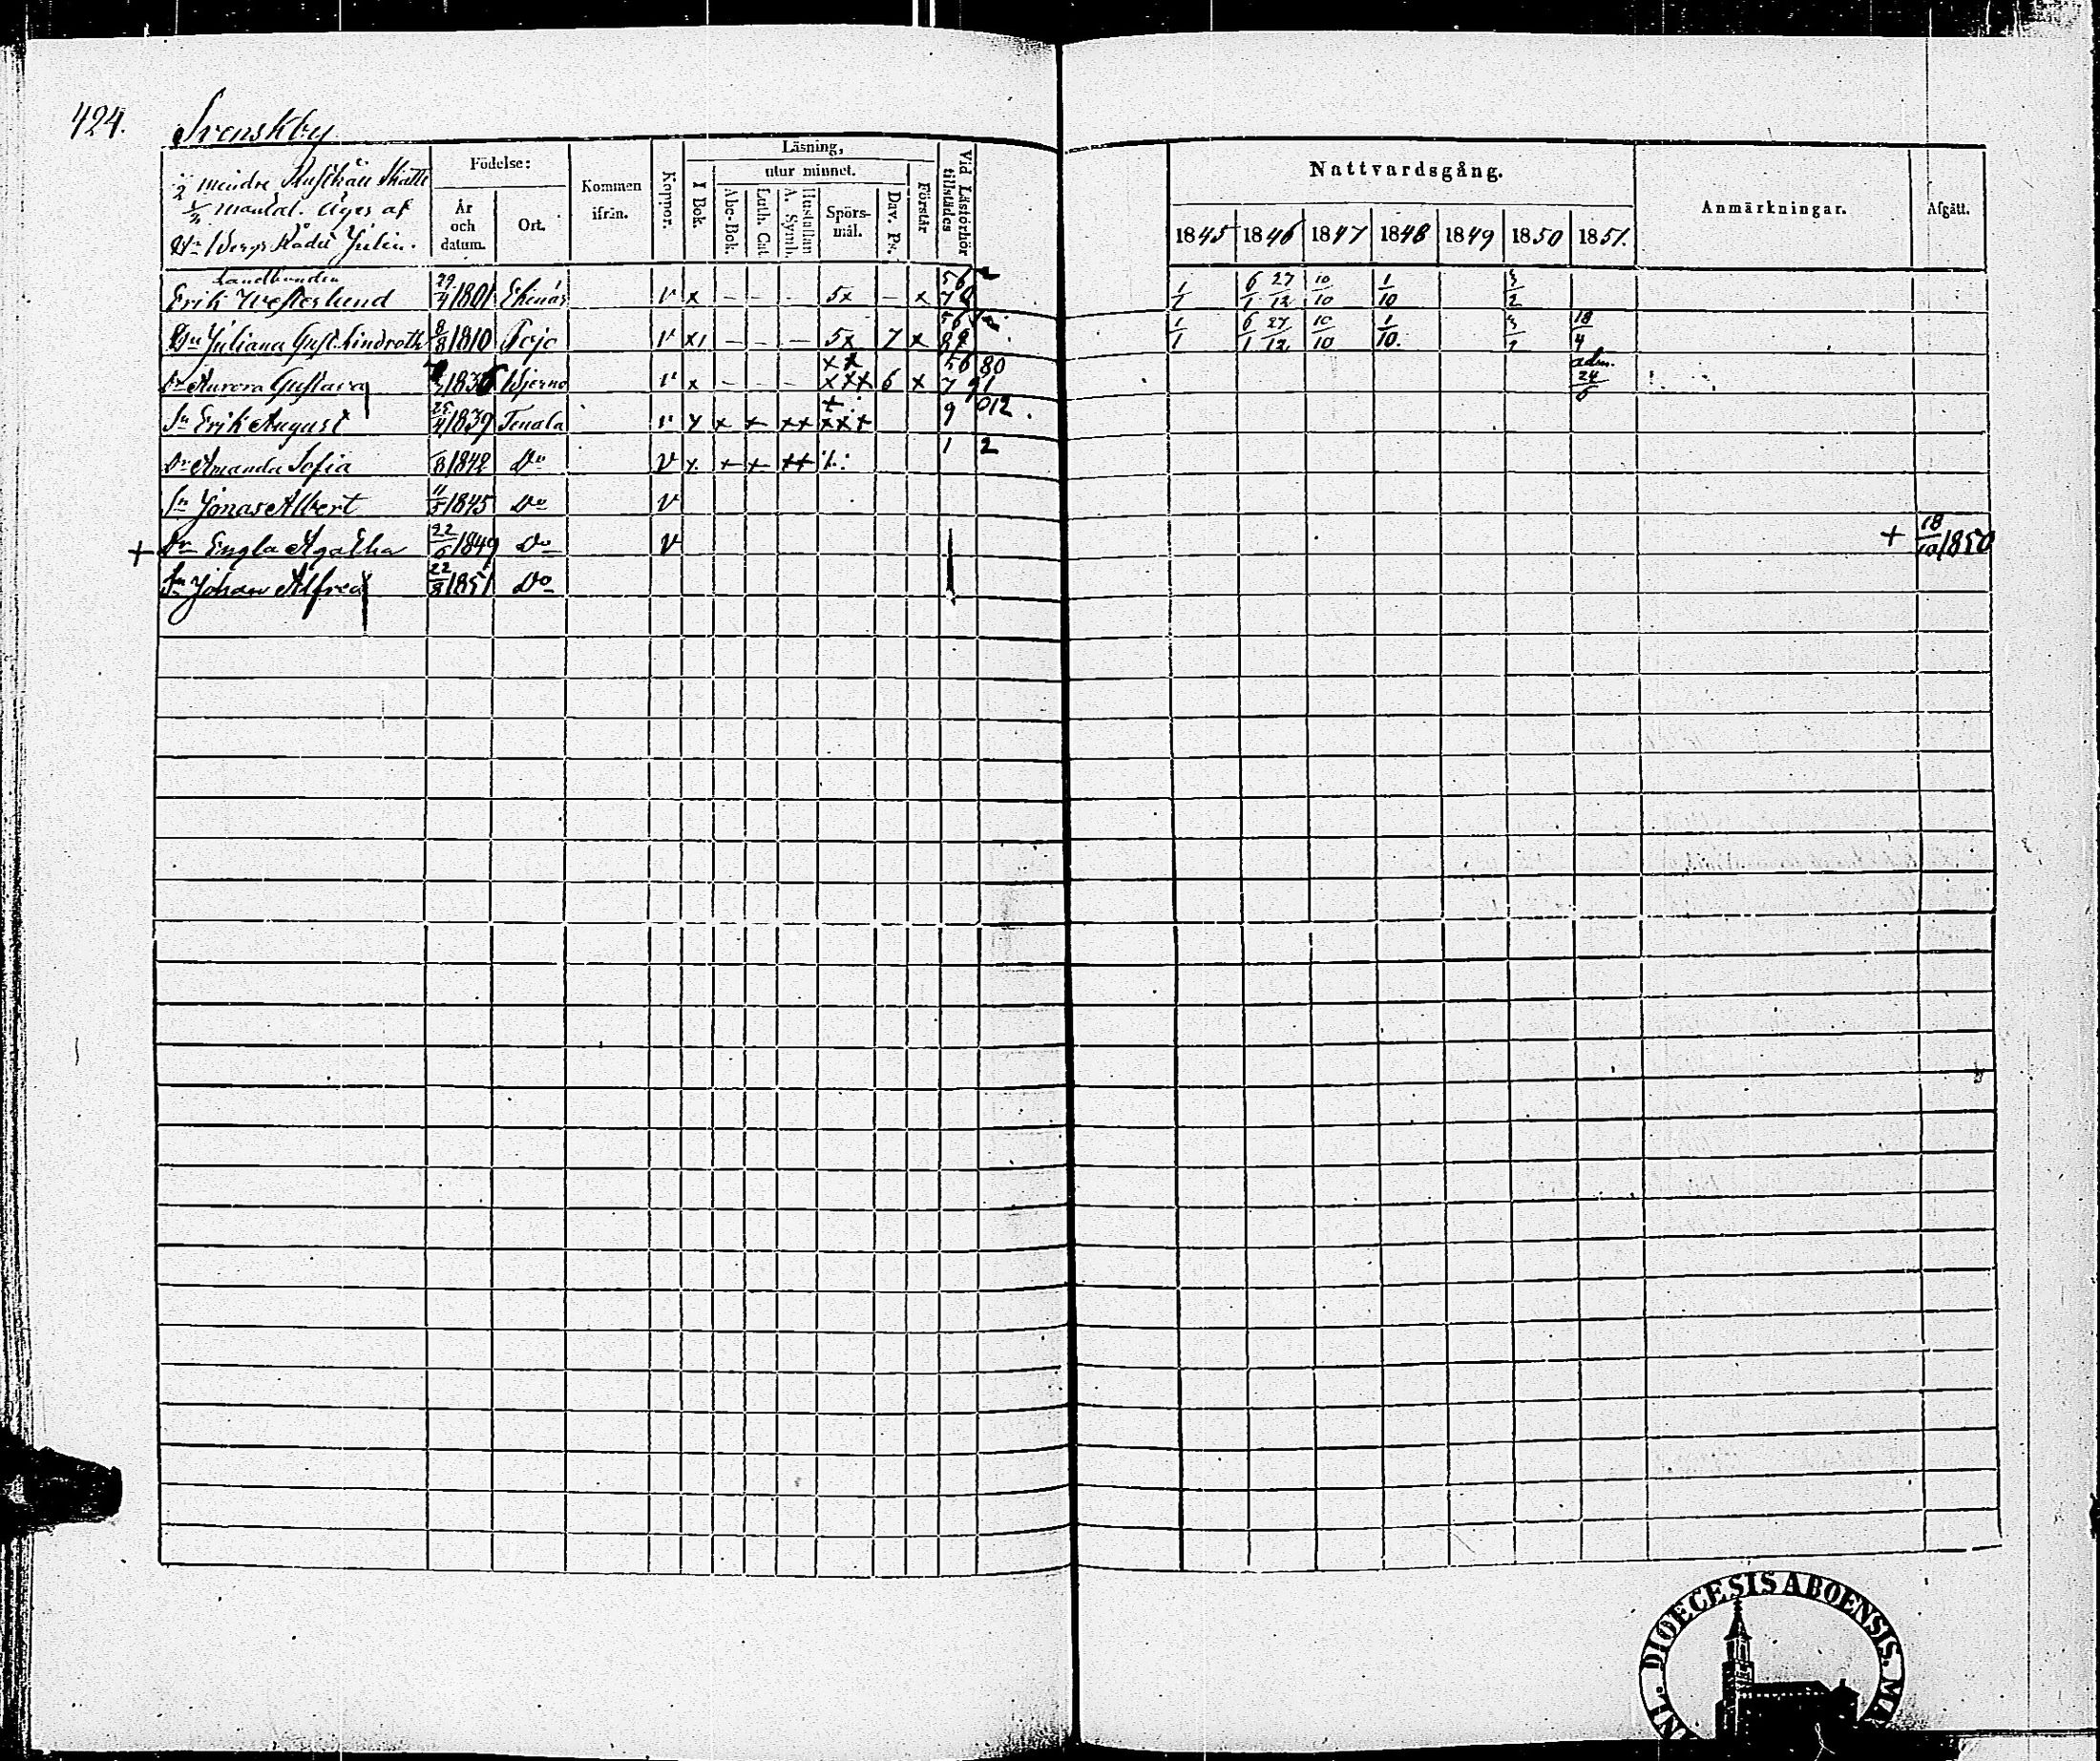 424. Svenskby
mindre Rusthåll Skatte
mantal. Äges af
Hr Bergs Rådet Julin.
Födelse:
År och datum.
Ort.
Kommen ifrån.
Koppor.
Läsning,
I Bok.
utur minnet.
Abc-Bok.
Luth. Cat.
Hustaflan A. Symb.
Spörs-mål.
Dav. Ps.
Förstår
Vid Läsförhör tillstädes
Nattvardsgång.
1845 1846 1847 1848 1849 1850 1851.
Anmärkningar.
Afgått.
Landbonden
Erik Westerlund 29/4 1801 Ekenäs v x – – – 5x – x 1/1 6/1 27/12 10/10 1/10 3/2
Hu Juliana Gust. Lindroth 8/8 1810 Pojo v x – – – 5x 7 x 1/1 6/1 27/12 10/10 1/10. 18/4
Dr Aurora Gustava 1836 Bjerno v x – – – xx xxx 6 x 56 80 7 91 adm. 24/6
Sn Erik August 25/4 1839 Tenala v x x x xx xxx 9 012.
Dr Amanda Sofia 1842 Do v x x x xx 1 2
Sn Jonas Albert 11/5 1845 Do v
+ Dr Engla Agatha 22/6 1849 Do v + 18/10 1850
Sn Johan Alfred 22/8 1851 Do
DIOECESIS ABOENSIS.